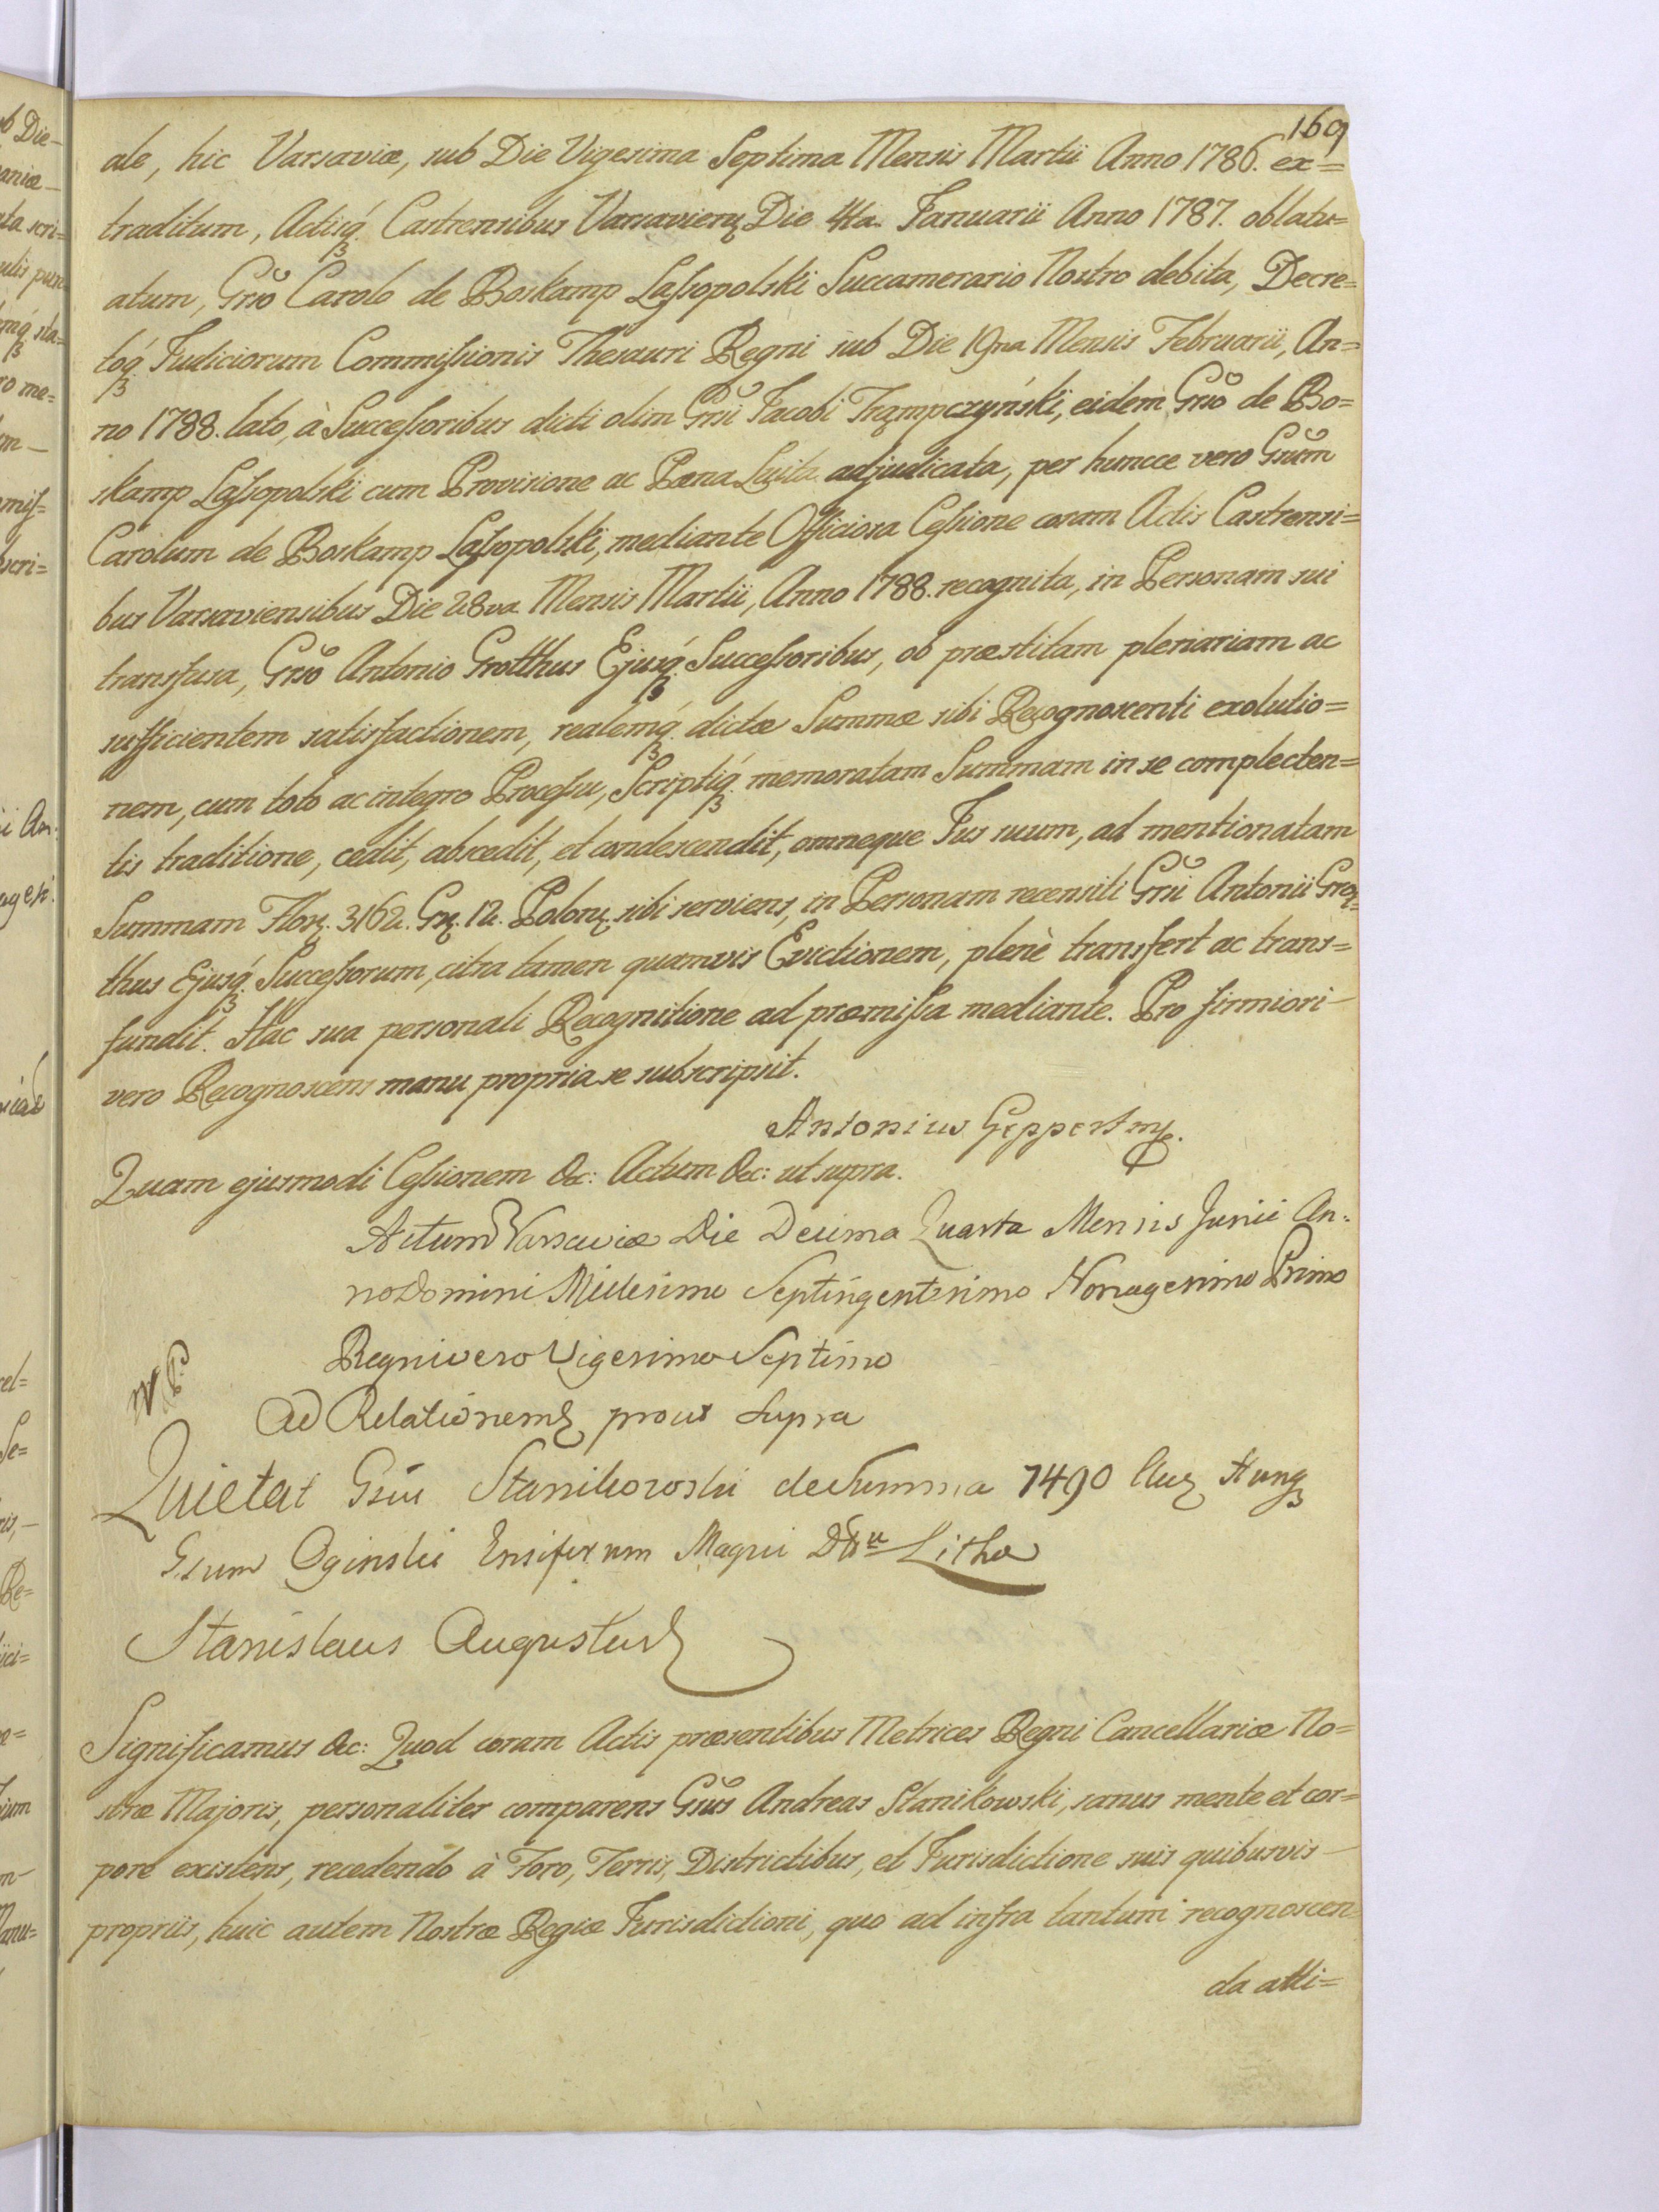 169
ale, hic Varsaviæ, sub Die Vigesima Septima Mensis Martii Anno 1786. ex=
traditum, Actisq́ꝫ Castrensibus Varsavienꝫ Die 4ta Januarii Anno 1787. oblatu=
atum, Gnõ Carolo de Boskamp Laſsopolski Succamerario Nostro debita, Decre=
toq́ꝫ Judiciorum Commiſsionis Thesauri Regni sub Die 19na Mensis Februarii, An=
no 1788. lato, à Succeſsoribus dicti olim Gñi Jacobi Trąmpczyński, eidem Gnõ de Bo=
skamp Laſsopolski cum Provisione ac Pœna Luita adjudicata, per huncce vero Gnũm
Carolum de Boskamp Laſsopolski, mediante Officiosa Ceſsione coram Actis Castrensi=
bus Varsaviensibus Die 28va Mensis Martii, Anno 1788. recognita, in Personam sui
transfusa, Gnõ Antonio Grotthus Ejusq́ꝫ Succeſsoribus, ob præstitam plenariam ac
sufficientem satisfactionem, realemq́ꝫ dictæ Summæ sibi Recognoscenti exolutio=
nem, cum toto ac integro Proceſsu, Scriptiq́ꝫ memoratam Summam in se complecten=
tis traditione, cedit, abscedit, et condescendit, omneque Jus suum, ad mentionatam
Summam Florꝫ. 3162. Grꝫ. 12. Polonꝫ sibi serviens, in Personam recensiti Gñi Antonii Grot=
thus Ejusq́ꝫ Succeſsorum, citra tamen quamvis Evictionem, plenè transfert ac trans=
fundit. Hac sua personali Recognitione ad præmiſsa mediante. Pro firmiori
vero Recognoscens manu propria se subscripsit.
Antonius Geppert mp.
Quam ejusmodi Ceſsionem &c: Actum &c: ut supra.
Actum Varsaviæ Die Decima Quarta Mensis Junii An=
no Domini Millesimo Septingentesimo Nonagesimo Primo
Regni vero Vigesimo Septimo
Ad Relationemꝫ prout supra
Quietat Gsũs Stanikowski de Summa 7490 Auꝫ Hungꝫ
Gsum Oginski Ensiferum Magni D̃ũs Lithæ
Stanislaus Augustusꝫ
Significamus &c: Quod coram Actis præsentibus Metrices Regni Cancellariæ No=
stræ Majoris, personaliter comparens Gñus Andreas Stanikowski, sanus mente et cor=
pore existens, recedendo à Foro, Terris, Districtibus, et Jurisdictione suis quibusvis
propriis, huic autem Nostræ Regiæ Jurisdictioni, quo ad infra tantum recognoscen=
da atti=